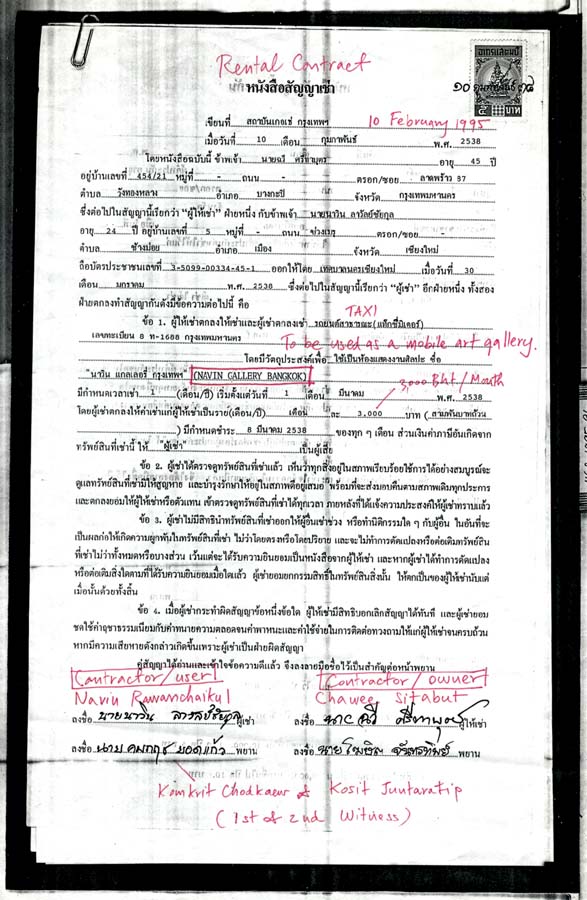 Rental Contract
หนังสือสัญญาเช่า
อากรแสตมป์
๕ บาท
เขียนที่ สถาบันเกอเธ่ กรุงเทพฯ
10 February 1995
เมื่อวันที่ 10 เดือน กุมภาพันธ์ พ.ศ. 2538
โดยหนังสือฉบับนี้ ข้าพเจ้า นายฉวี ศรีทาบุตร อายุ 45 ปี
อยู่บ้านเลขที่ 454/21 หมู่ที่ - ถนน - ตรอก/ซอย ลาดพร้าว 87
ตำบล วังทองหลาง อำเภอ บางกะปิ จังหวัด กรุงเทพมหานคร
ซึ่งต่อไปในสัญญานี้เรียกว่า "ผู้ให้เช่า" ฝ่ายหนึ่ง กับข้าพเจ้า นายนาวิน ลาวัลย์ชัยกุล
อายุ 24 ปี อยู่บ้านเลขที่ 5 หมู่ที่ - ถนน ช่างเมฆ ตรอก/ซอย -
ตำบล ช้างม่อย อำเภอ เมือง จังหวัด เชียงใหม่
ถือบัตรประชาชนเลขที่ 3-5099-00334-45-1 ออกให้โดย เทศบาลนครเชียงใหม่ เมื่อวันที่ 30
เดือน มกราคม พ.ศ. 2538 ซึ่งต่อไปในสัญญานี้เรียกว่า "ผู้เช่า" อีกฝ่ายหนึ่ง ทั้งสอง
ฝ่ายตกลงทำสัญญากันดังมีข้อความต่อไปนี้ คือ
TAXI
ข้อ 1. ผู้ให้เช่าตกลงให้เช่าและผู้เช่าตกลงเช่า รถยนต์สาธารณะ(แท็กซี่มิเตอร์)
เลขทะเบียน 8 ท-1688 กรุงเทพมหานคร
To be used as a mobile art gallery.
โดยมีวัตถุประสงค์เพื่อ ใช้เป็นห้องแสดงงานศิลปะ ชื่อ
"นาวิน แกลเลอรี่ กรุงเทพฯ" (NAVIN GALLERY BANGKOK)
3,000 Bht/Month
มีกำหนดเวลาเช่า 1 (เดือน/ปี) เริ่มตั้งแต่วันที่ 1 เดือน มีนาคม พ.ศ. 2538
โดยผู้เช่าตกลงให้ค่าเช่าแก่ผู้ให้เช่าเป็นราย(เดือน/ปี) เดือน ละ 3,000 บาท (สามพันบาทถ้วน
) มีกำหนดชำระ 8 มีนาคม 2538 ของทุก ๆ เดือน ส่วนเงินค่าภาษีอันเกิดจาก
ทรัพย์สินที่เช่านี้ ให้ "ผู้เช่า" เป็นผู้เสีย
ข้อ 2. ผู้เช่าได้ตรวจดูทรัพย์สินที่เช่าแล้ว เห็นว่าทุกสิ่งอยู่ในสภาพเรียบร้อยใช้การได้อย่างสมบูรณ์จะ
ดูแลทรัพย์สินที่เช่ามิให้สูญหาย และบำรุงรักษาให้อยู่ในสภาพดีอยู่เสมอ พร้อมที่จะส่งมอบคืนตามสภาพเดิมทุกประการ
และตกลงยอมให้ผู้ให้เช่าหรือตัวแทน เข้าตรวจดูทรัพย์สินที่เช่าได้ทุกเวลา ภายหลังที่ได้แจ้งความประสงค์ให้ผู้เช่าทราบแล้ว
ข้อ 3. ผู้เช่าไม่มีสิทธินำทรัพย์สินที่เช่าออกให้ผู้อื่นเช่าช่วง หรือทำนิติกรรมใด ๆ กับผู้อื่น ในอันที่จะ
เป็นผลก่อให้เกิดความผูกพันในทรัพย์สินที่เช่า ไม่ว่าโดยตรงหรือโดยปริยาย และจะไม่ทำการดัดแปลงหรือต่อเติมทรัพย์สิน
ที่เช่าไม่ว่าทั้งหมดหรือบางส่วน เว้นแต่จะได้รับความยินยอมเป็นหนังสือจากผู้ให้เช่า และหากผู้เช่าได้ทำการดัดแปลง
หรือต่อเติมสิ่งใดตามที่ได้รับความยินยอมเมื่อใดแล้ว ผู้เช่ายอมยกกรรมสิทธิ์ในทรัพย์สินสิ่งนั้น ให้ตกเป็นของผู้ให้เช่านับแต่
เมื่อนั้นด้วยทั้งสิ้น
ข้อ 4. เมื่อผู้เช่ากระทำผิดสัญญาข้อหนึ่งข้อใด ผู้ให้เช่ามีสิทธิบอกเลิกสัญญาได้ทันที และผู้เช่ายอม
ชดใช้ค่าฤชาธรรมเนียมกับค่าทนายความตลอดจนค่าพาหนะและค่าใช้จ่ายในการติดต่อทวงถามให้แก่ผู้ให้เช่าจนครบถ้วน
หากมีความเสียหายดังกล่าวเกิดขึ้นเพราะผู้เช่าเป็นฝ่ายผิดสัญญา
คู่สัญญาได้อ่านและเข้าใจข้อความดีแล้ว จึงลงลายมือชื่อไว้เป็นสำคัญต่อหน้าพยาน
Contractor/user Contractor/owner
Navin Rawanchaikul Chawee Sitabut
ลงชื่อ นายนาวิน ลาวัลย์ชัยกุล ผู้เช่า ลงชื่อ นายฉวี ศรีทาบุตร ผู้ให้เช่า
ลงชื่อ นาย คมกฤช ยอดแก้ว พยาน ลงชื่อ นายโฆษิต จันทรทิพย์ พยาน
Komkrit Chodkaew & Kosit Juntaratip
(1st & 2nd Witness)